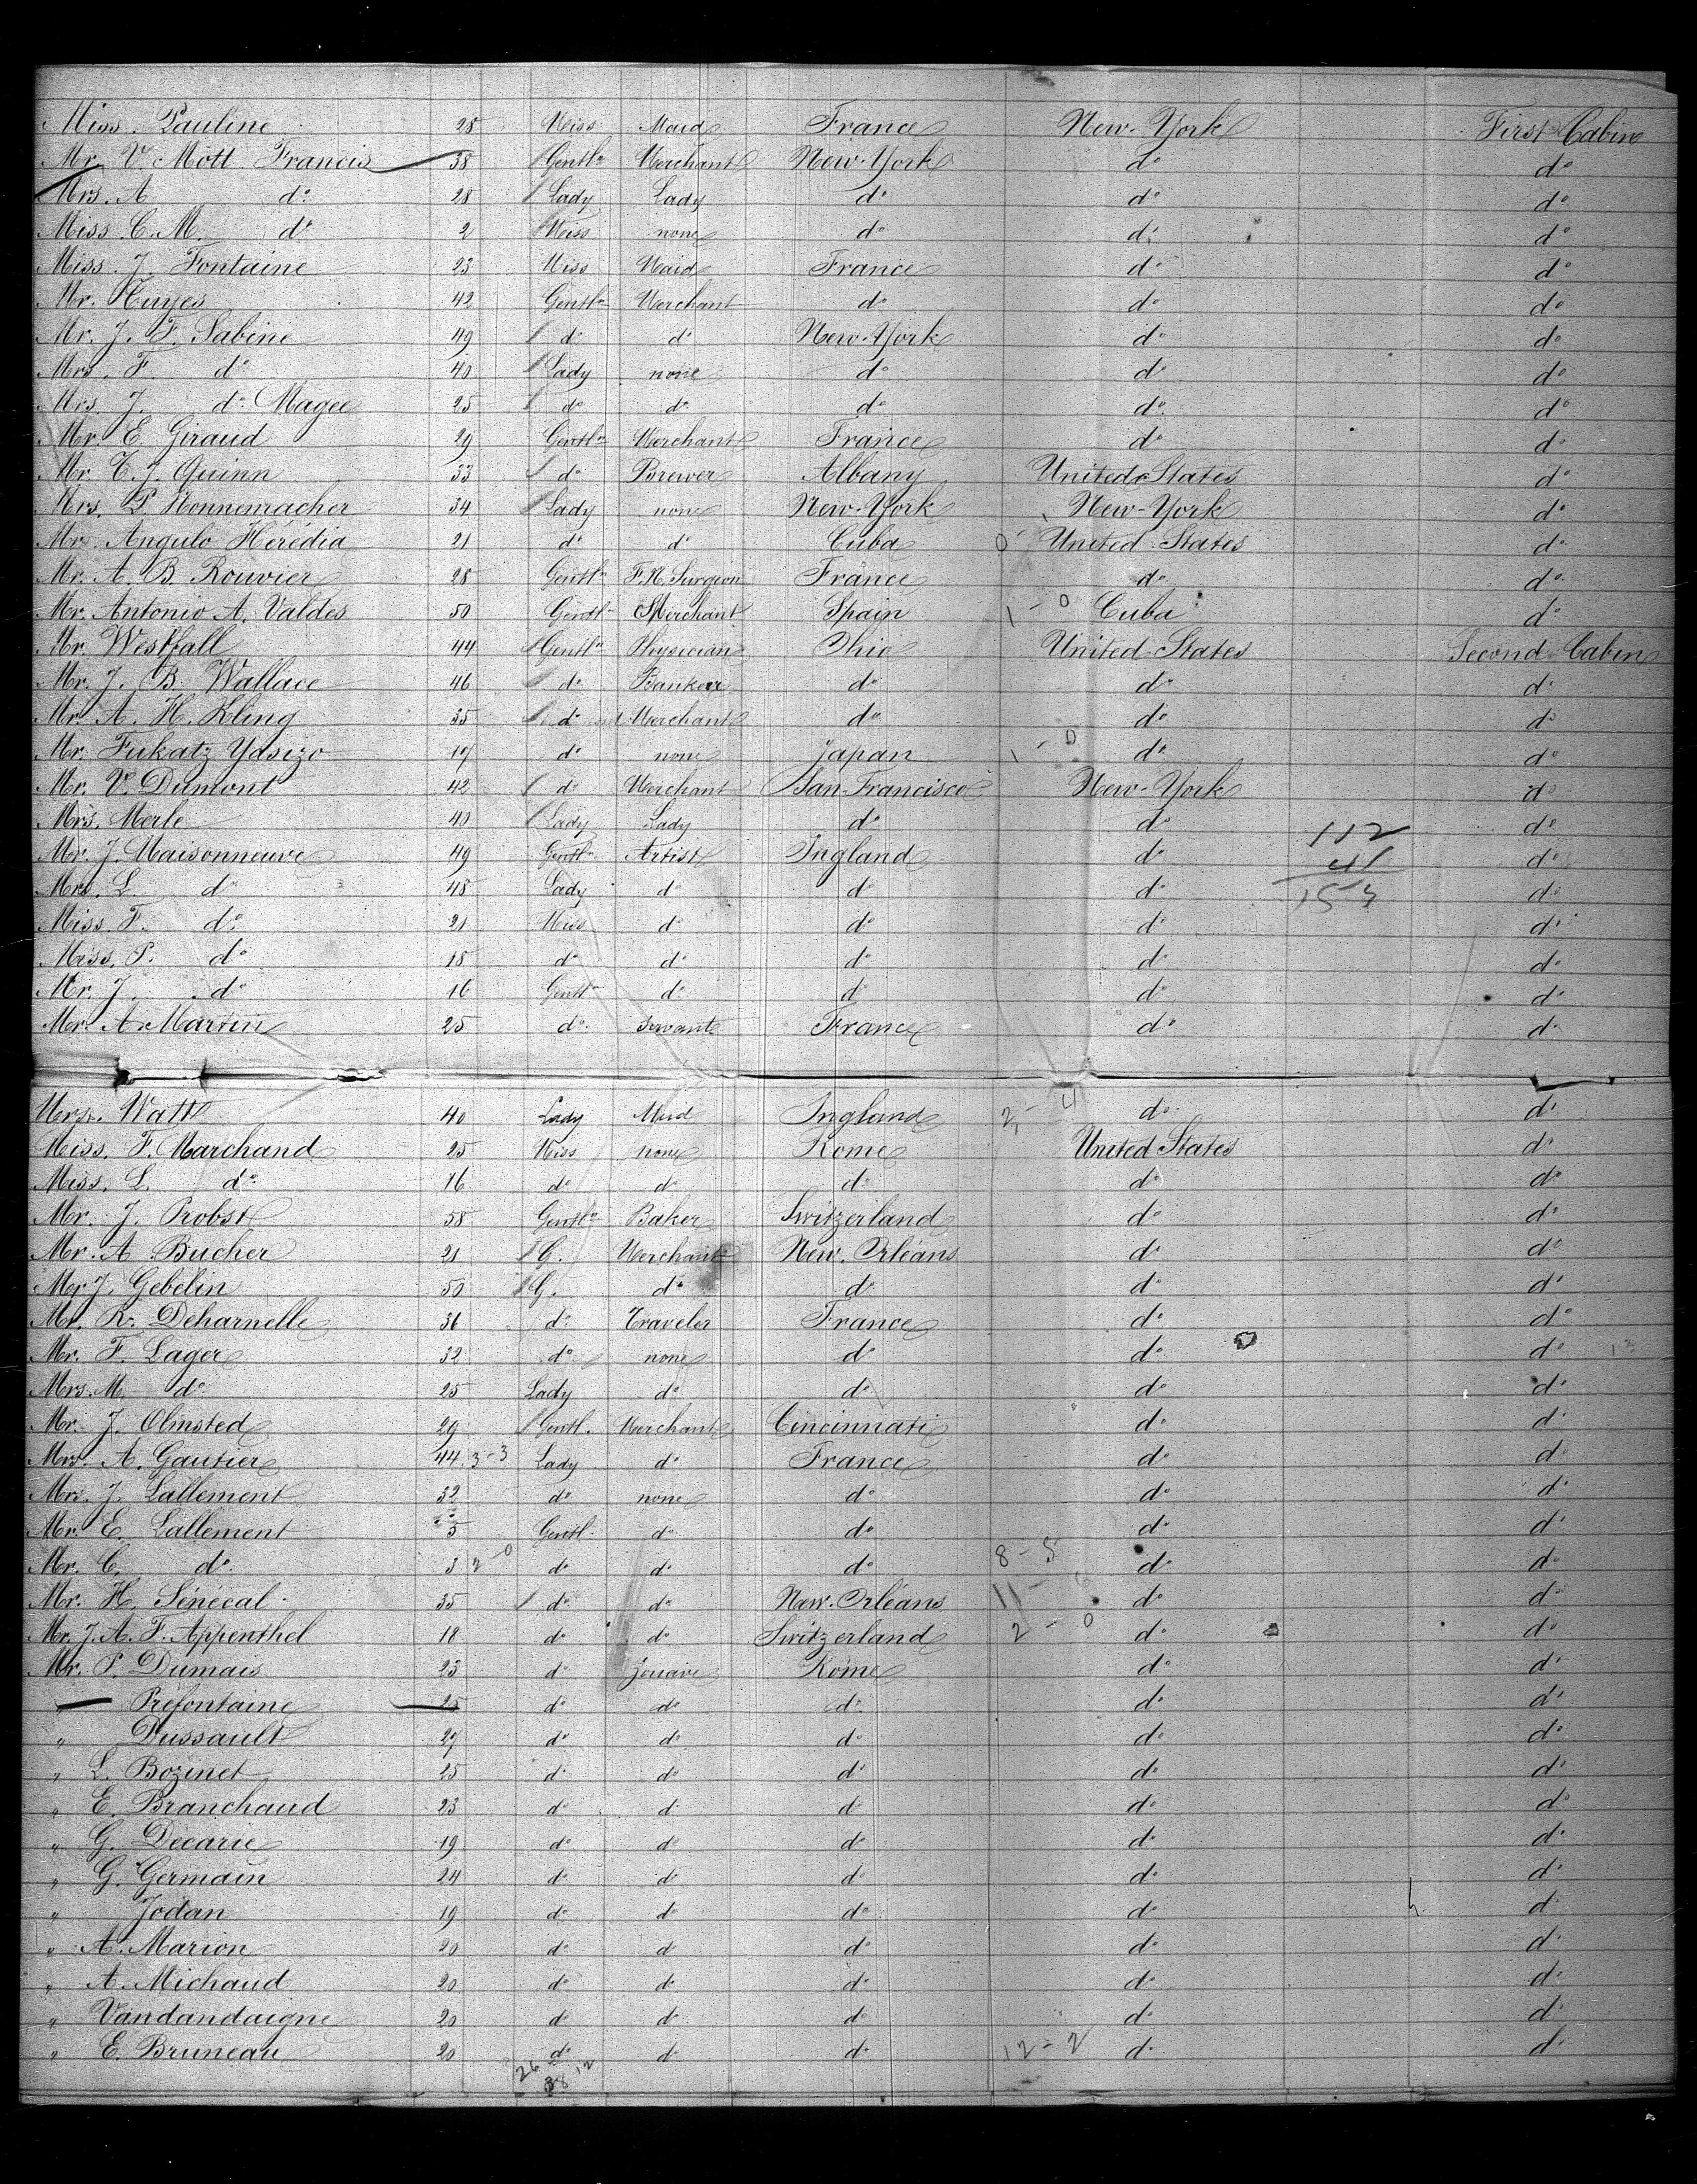 Miss. Pauline 28 Miss Maid France New-York First Cabin
Mr. V. Mott Francis 38 Gentln Merchant New-York do do
Mrs. A do 28 Lady Lady do do do
Miss. C. M. do 2 Miss none do do do
Miss. J. Fontaine 23 Miss Maid France do do
Mr. Tuyes 42 Gentln Merchant do do do
Mr. J. F. Sabine 49 do do New-York do do
Mrs. F. do 40 Lady none do do do
Mrs. J. do Magee 25 do do do do do
Mr. E. Giraud 29 Gentln Merchant France do do
Mr. T. J. Quinn 33 do Brewer Albany United States do
Mrs. P. Nonnemacher 34 Lady none New-York New-York do
Mr. Angulo Hérédia 21 do do Cuba 0 United-States do
Mr. A. B. Rouvier 28 Gentln F. N. Surgeon France do do
Mr. Antonio A. Valdes 50 Gentln Merchant Spain 1-0 Cuba do
Mr. Westfall 44 Gentln Physician Ohio United-States Second Cabin
Mr. J. B. Wallace 46 do Banker do do do
Mr. A. H. Kling 35 do Merchant do do do
Mr. Fukatz Yasizo 17 do none Japan 1-0 do do
Mr. V. Dumont 42 do Merchant San-Francisco New-York do
Mrs. Merle 40 Lady Lady do do 112 do
Mr. J. Maisonneuve 49 Gentln Artist Ingland do 41 do
Mrs. L. do 48 Lady do do do 153 do
Miss. F. do 21 Miss do do do do
Miss. P. do 18 do do do do do
Mr. J. do 16 Gentln do do do do
Mr. A. Martin 25 do Servant France do do
Mrs. Watt 40 Lady Maid Ingland 2-4 do do
Miss. F. Marchand 25 Miss none Rome United States do
Miss. L. do 16 do do do do do
Mr. J. Probst 58 Gentln Baker Switzerland do do
Mr. A Bucher 21 G. Merchant New. Orléans do do
Mr J. Gebelin 50 G. do do do do
Mr. R. Deharnelle 36 do Traveler France do do
Mr. F. Lager 32 do none do do do 13
Mrs. M. do 25 Lady do do do do
Mr. J. Olmsted 29 Gentl. Merchant Cincinnati do do
Mrs. A. Gautier 44 3-3 Lady do France do do
Mrs. J. Lallement 32 do none do do do
Mr. E. Lallement 5 Gentl. do do do do
Mr. C. do 3 2-0 do do do 8-5 do do
Mr. H. Sénécal 35 do do New. Orléans 11- do do
Mr. J. A. F. Appenthel 18 do do Switzerland 2-0 do do
Mr. P. Dumais 23 do Zouave Rome do do
Préfontaine 25 do do do do do
" Dussault 27 do do do do do
" L. Bozinet 25 do do do do do
" E. Branchaud 23 do do do do do
" G. Décarie 19 do do do do do
" G. Germain 24 do do do do do
" Jodan 19 do do do do do
" A. Marion 20 do do do do do
" A. Michaud 20 do do do do do
" Vandandaigne 20 do do do do do
" E. Bruneau 20 do do do 12-2 do do
26 12
38